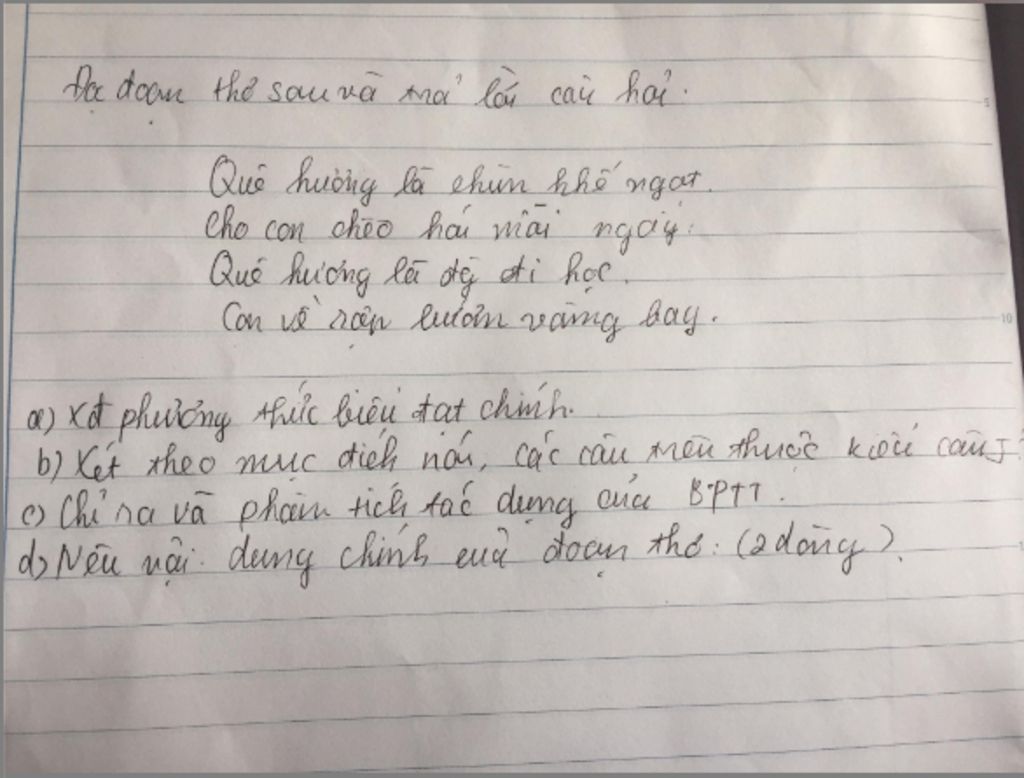 Đọc đoạn thơ sau và trả lời câu hỏi.
Quê hương là chùm khế ngọt.
Cho con chèo hái mỗi ngày.
Quê hương là đg đi học.
Con về rợp bướm vàng bay.
a) Xđ phương thức biểu đạt chính.
b) Xét theo mục đích nói, các câu trên thuộc kiểu câu
c) Chỉ ra và phân tích tác dụng của BPTT.
d) Nêu nội dung chính của đoạn thơ. (2 dòng).
5
10